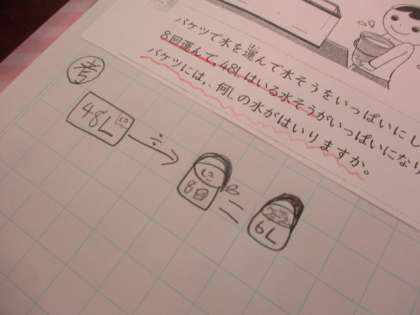 バケツで水を運んで水そうをいっぱいにし
8回運んで、48Lはいる水そうがいっぱいになり
バケツには、何Lの水がはいりますか。
考
48L ÷ 8回 = 6L